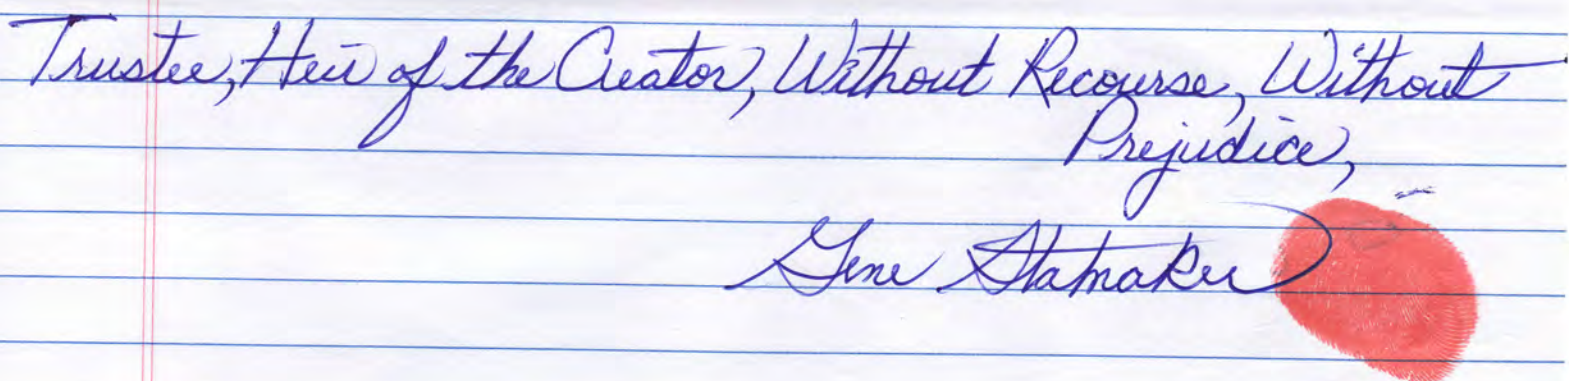 Trustee, Heir of the Creator, Without Recourse, Without
Prejudice,
Gene